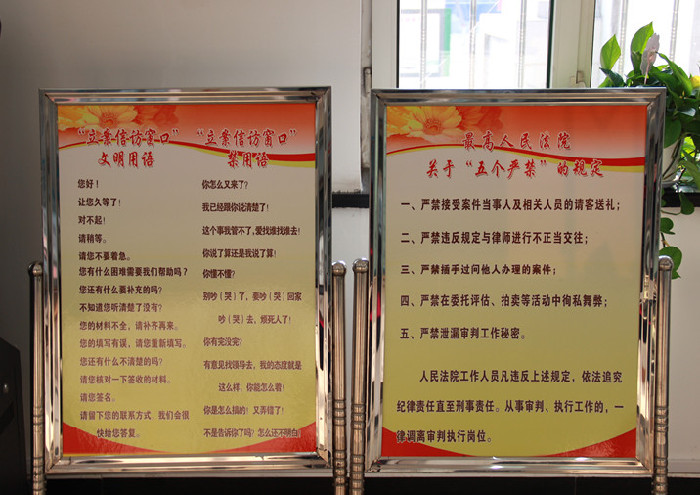 “立案信访窗口”
文明用语
您好！
让您久等了！
对不起！
请稍等。
请您不要着急。
您有什么困难需要我们帮助吗？
您还有什么要补充的吗？
不知道您听清楚了没有？
您的材料不全，请补齐再来。
您的填写有误，请您重新填写。
您还有什么不清楚的吗？
请您核对一下签收的材料。
请您签名。
请留下您的联系方式 我们会很
快给您答复。
“立案信访窗口”
禁用语
你怎么又来了？
我已经跟你说清楚了！
这个事我管不了,爱找谁找谁去！
你说了算还是我说了算！
你懂不懂？
别吵（哭）了，要吵（哭）回家
吵（哭）去，烦死人了！
你有完没完！
有意见找领导去，我的态度就是
这么样，你能怎么着！
你是怎么搞的！又弄错了！
不是告诉你了吗？怎么还不明白
最高人民法院
关于“五个严禁”的规定
一、严禁接受案件当事人及相关人员的请客送礼；
二、严禁违反规定与律师进行不正当交往；
三、严禁插手过问他人办理的案件；
四、严禁在委托评估、拍卖等活动中徇私舞弊；
五、严禁泄漏审判工作秘密。
人民法院工作人员凡违反上述规定，依法追究
纪律责任直至刑事责任。从事审判、执行工作的，一
律调离审判执行岗位。